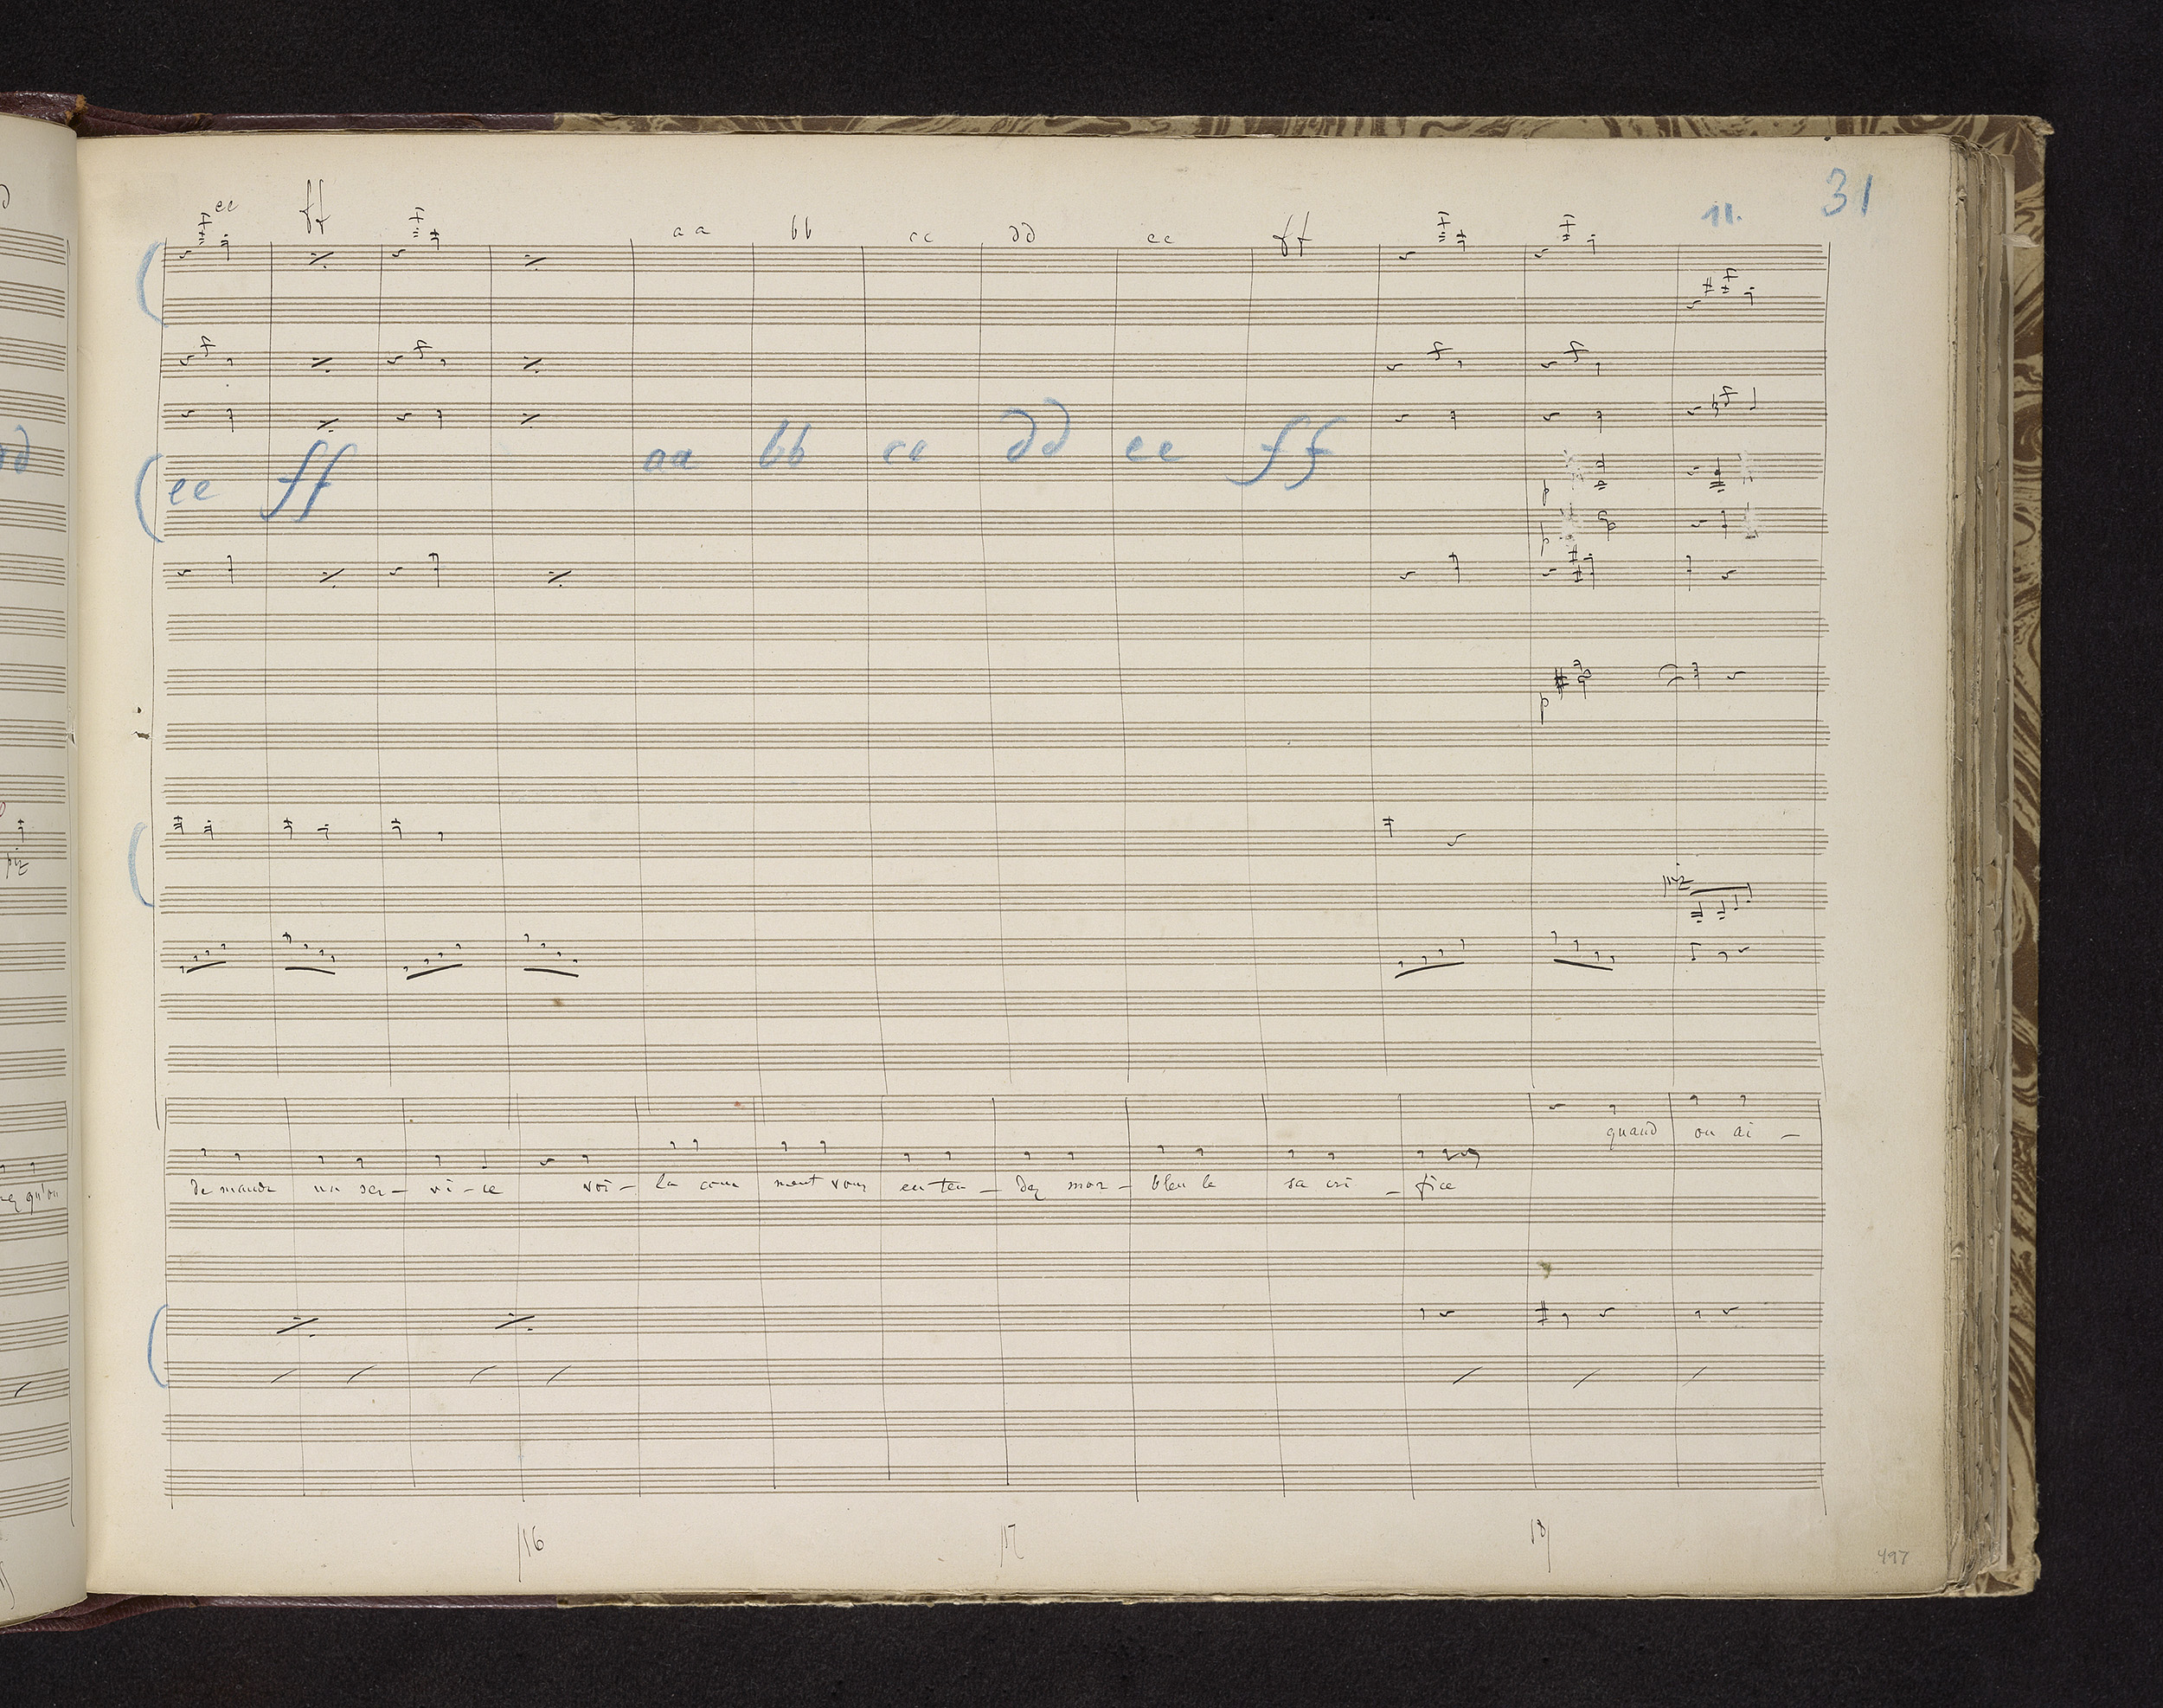 31
11.
ee ff aa bb cc dd ee ff
dd
ee ff aa bb cc dd ee ff
p
p
p
piz
piz
quand on ai -
demande un ser - vi - ce voi - là com ment vous en ten - dez mor - bleu le sa cri - fice
qu'on
16 17 18
497